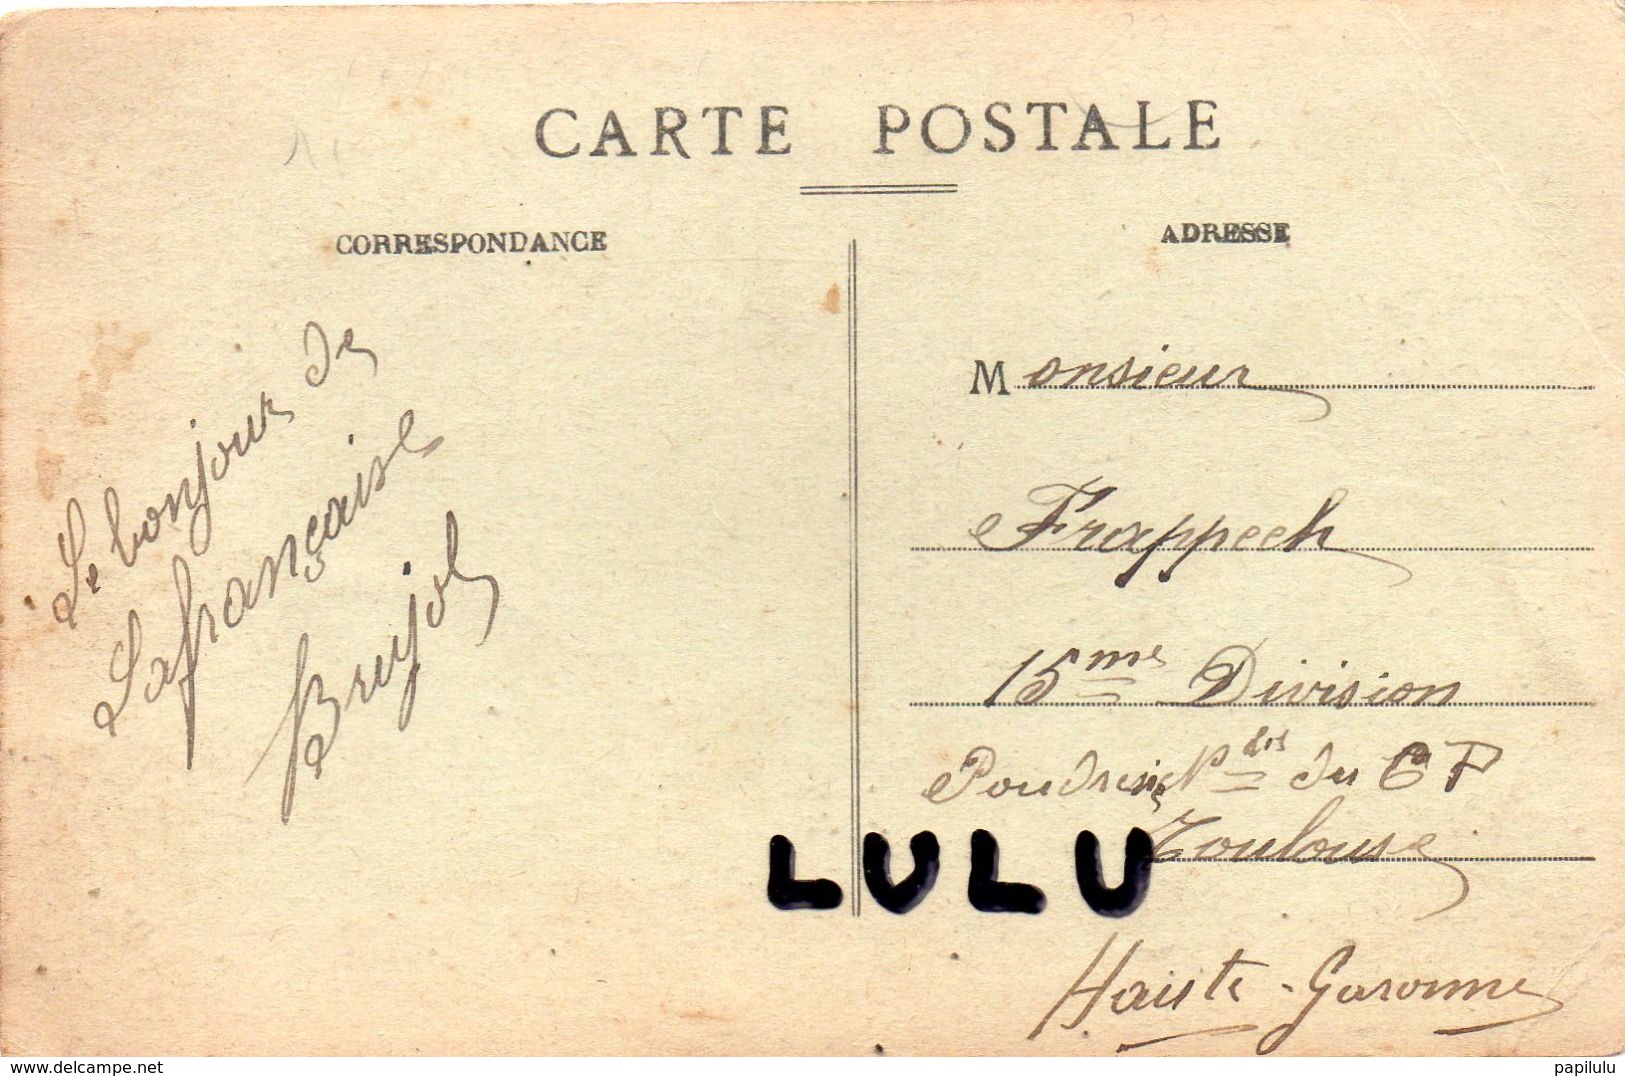 CARTE POSTALE
CORRESPONDANCE
ADRESSE
Le bonjour de
Lafrançaise
Brujol
Monsieur
Frappech
15me Division
du C P
Toulouse
LULU
Haute-Garonne
www.delcampe.net
papilulu